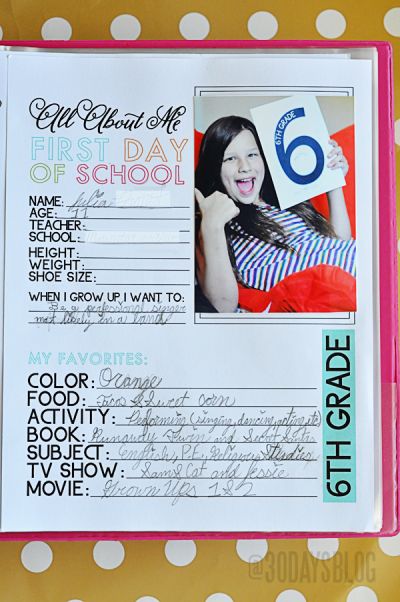 All About Me
FIRST DAY
OF SCHOOL
NAME: Julia
AGE: 11
TEACHER:
SCHOOL:
HEIGHT:
WEIGHT:
SHOE SIZE:
WHEN I GROW UP, I WANT TO:
Be a professional singer
most likely in a band
6TH GRADE
6
MY FAVORITES:
COLOR: Orange
FOOD: Tacos & Sweet Corn
ACTIVITY: Performing (singing, dancing, acting, etc)
BOOK: Runaway Twin and Secret
SUBJECT: English, P.E., Religious Studies
TV SHOW: Sam & Cat and Jessie
MOVIE: Grown Ups 1 & 2
6TH GRADE
@30DAYSBLOG